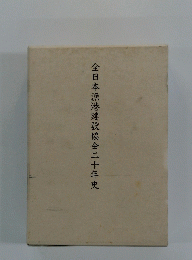 全日本漁港建設協会二十年史